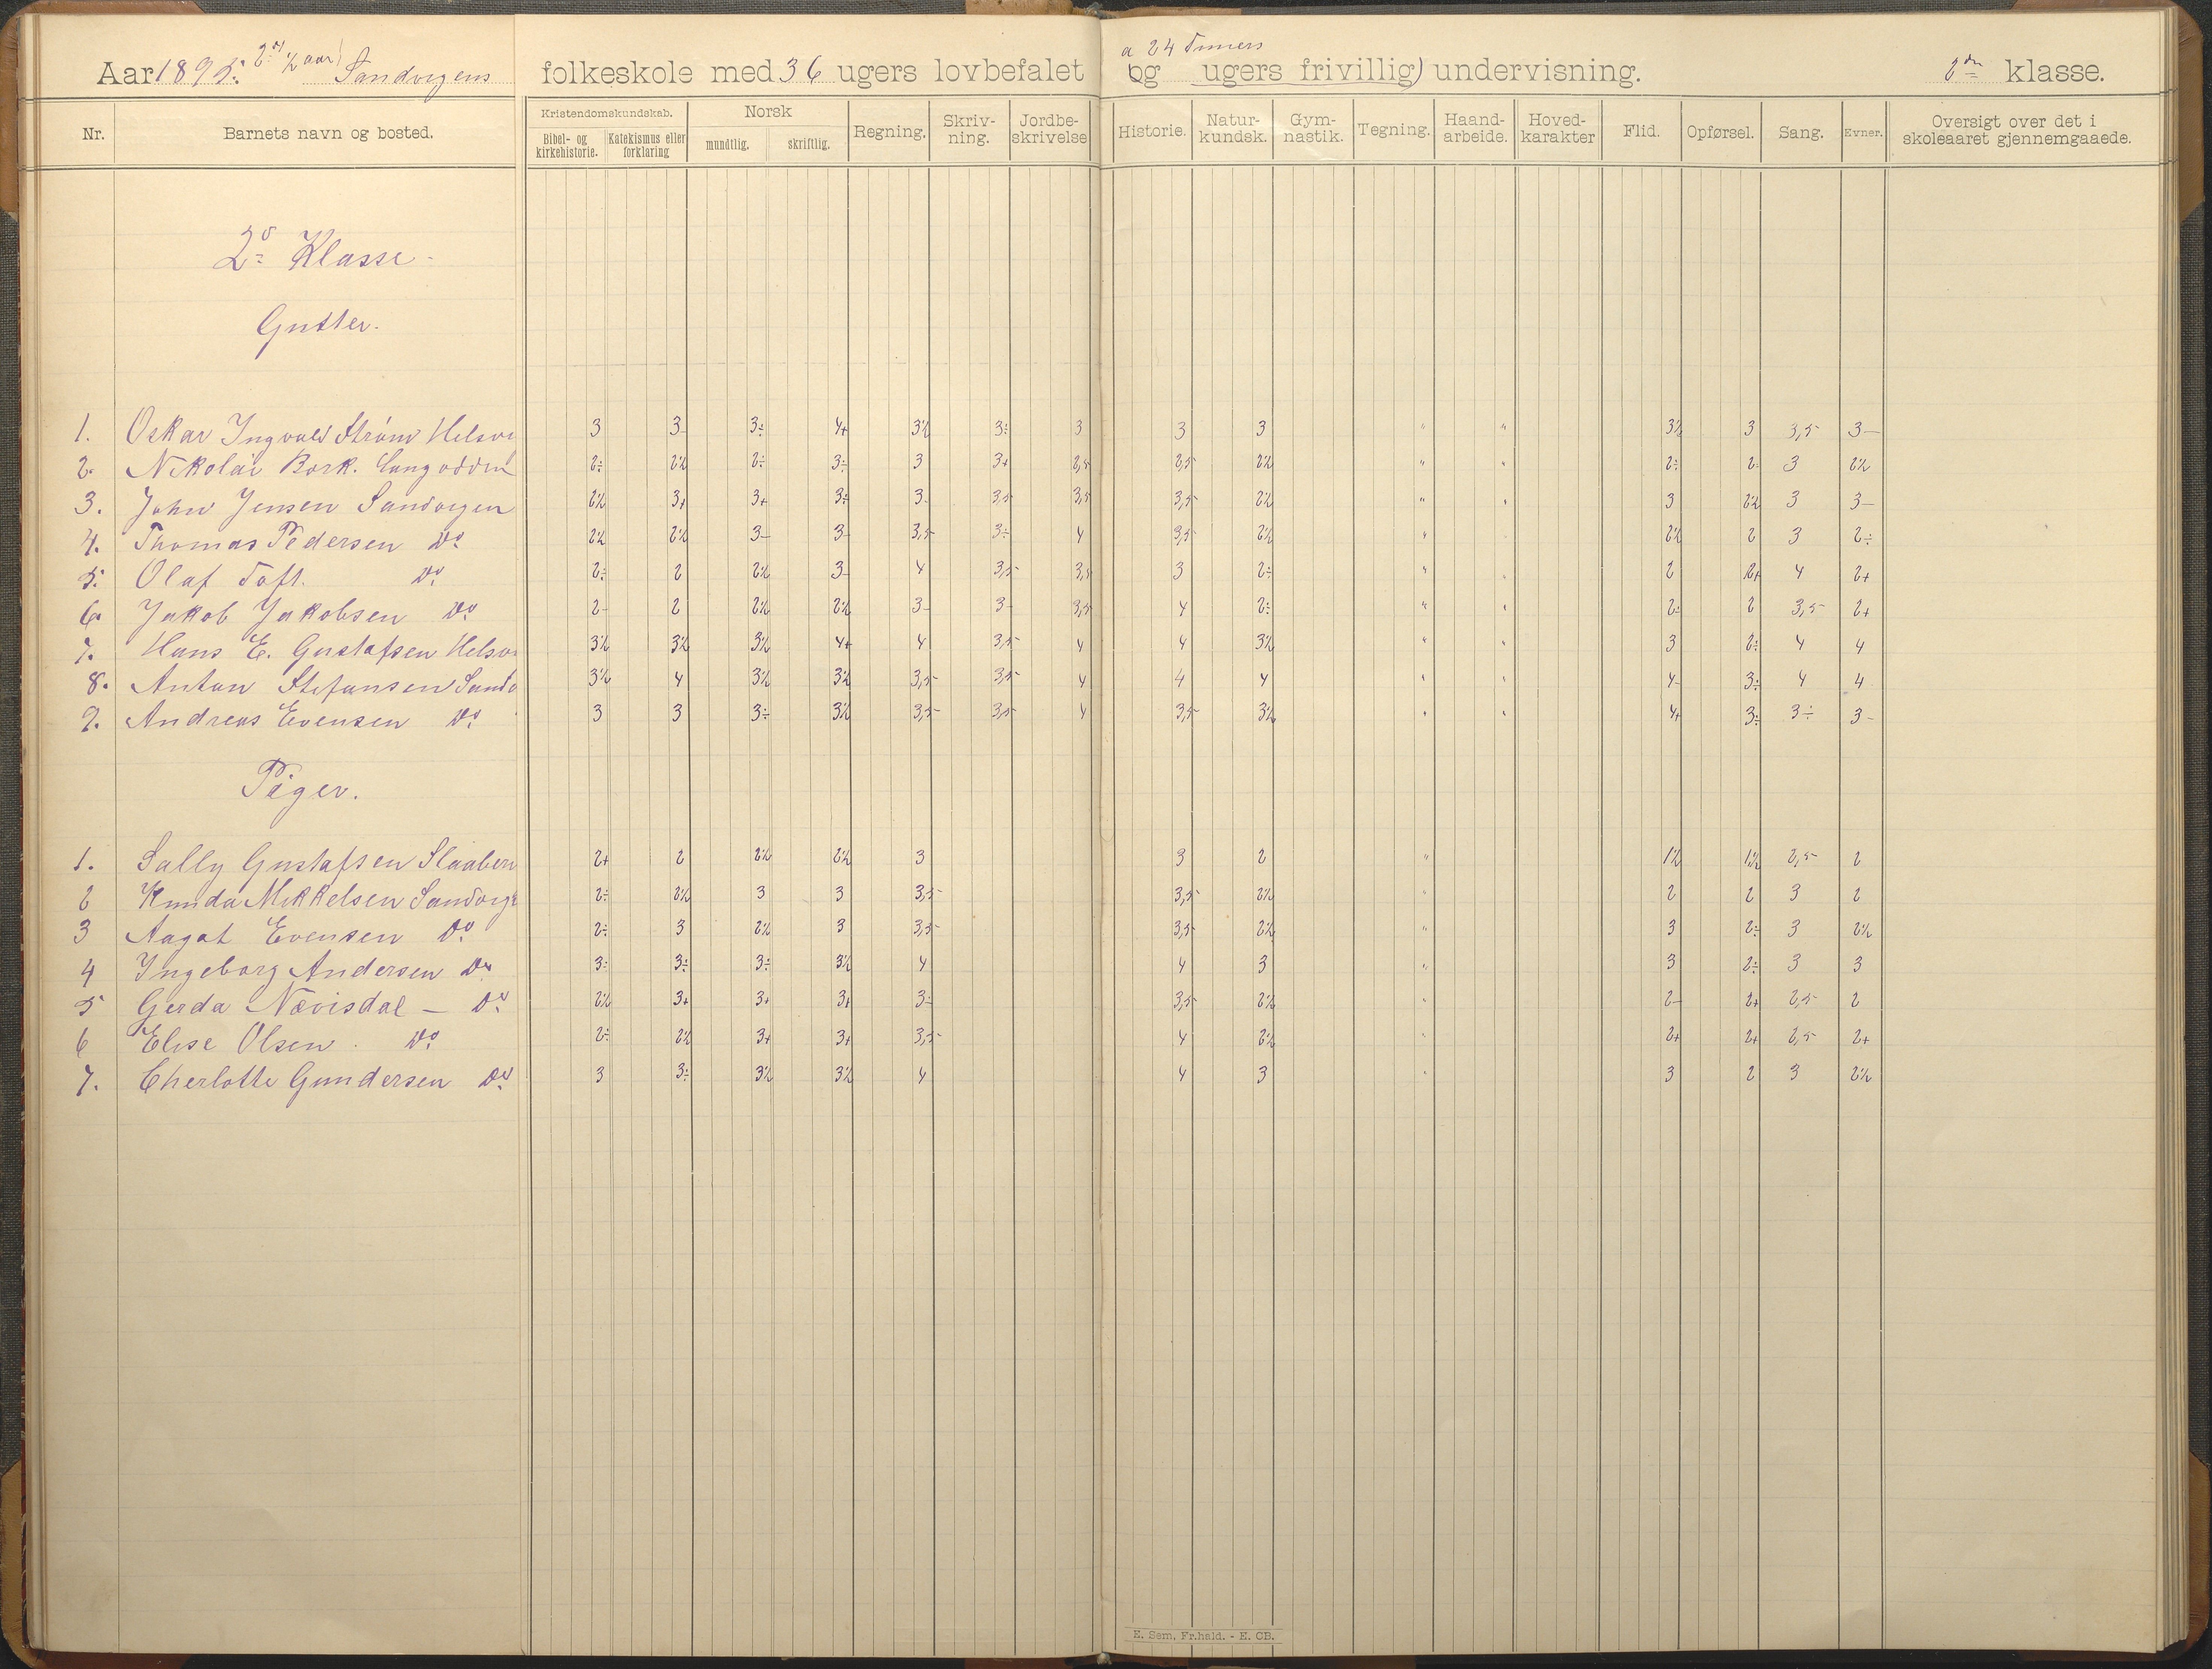 a 24 Timers
Aar 1895. 2det ½ aar) Sandvigens folkeskole med 36 ugers lovbefalet og ugers frivillig) undervisning. 2den klasse.
Nr. Barnets navn og bosted. Kristendomskundskab. Bibel- og kirkehistorie. Katekismus eller forklaring Norsk mundtlig. skriftlig. Regning. Skriv-ning. Jordbe-skrivelse Historie. Natur-kundsk. Gym-nastik. Tegning. Haand-arbeide. Hoved-karakter Flid. Opførsel. Sang. Evner. Oversigt over det i skoleaaret gjennemgaaede.
2den Klasse
Gutter.
1. Oskar Ingvald Strøm Helsvi 3 3- 3÷ 4+ 3½ 3÷ 3 3 3 " " 3½ 3 3,5 3-
2. Nikolai Bork. Langodden 2÷ 2½ 2÷ 3÷ 3 3+ 2,5 2,5 2½ " " 2÷ 2- 3 2½
3. John Jensen Sandvigen 2½ 3+ 3+ 3÷ 3- 3,5 3,5 3,5 2½ " " 3 2½ 3 3-
4. Thomas Pedersen Do 2½ 2½ 3- 3- 3,5 3÷ 4 3,5 2½ " 2½ 2 3 2÷
5. Olaf Toft. Do 2÷ 2 2½ 3- 4 3,5 3,5 3 2÷ " " 2 2+ 4 2+
6. Jakob Jakobsen Do 2- 2 2½ 2½ 3- 3- 3,5 4 2÷ " " 2÷ 2 3,5 2+
7. Hans E. Gustafsen Helsvi 3½ 3½ 3½ 4+ 4 3,5 4 4 3½ " " 3 2÷ 4 4
8. Anton Stefansen Sandv 3½ 4 3½ 3½ 3,5 3,5 4 4 4 " " 4- 3÷ 4 4
9. Andreas Evensen Do 3 3 3÷ 3½ 3,5 3,5 4 3,5 3½ " " 4+ 3÷ 3÷ 3-
Piger.
1. Sally Gustafsen Slaaben 2+ 2 2½ 2½ 3 3 2 " 1½ 1½ 2,5 2
2 Kunda Mikkelsen Sandvige 2÷ 2½ 3 3 3,5 3,5 2½ " 2 2 3 2
3 Aagot Evensen Do 2÷ 3 2½ 3 3,5 3,5 2½ " 3 2÷ 3 2½
4 Ingeborg Andersen Do 3÷ 3÷ 3÷ 3½ 4 4 3 " 3 2÷ 3 3
5 Gerda Nævisdal - Do 2½ 3+ 3+ 3+ 3÷ 3,5 2½ " 2- 2+ 2,5 2
6 Elise Olsen. Do 2÷ 2½ 3+ 3+ 3,5 4 2½ " 2+ 2+ 2,5 2+
7. Cherlotte Gundersen Do 3 3÷ 3½ 3½ 4 4 3 " 3 2 3 2½
E. Sem. Fr.hald. - E. CB.